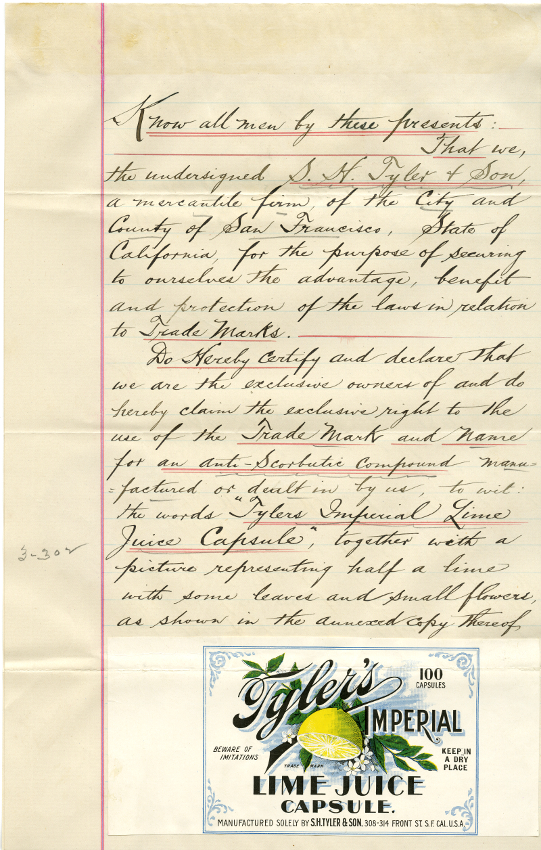 Know all men by these presents:
That we,
the undersigned S. H. Tyler & Son,
a mercantile firm, of the City and
County of San Francisco, State of
California, for the purpose of securing
to ourselves the advantage, benefit
and protection of the laws in relation
to Trade Marks.
Do Hereby Certify and declare that
we are the exclusive owners of and do
hereby claim the exclusive right to the
use of the Trade Mark and Name
for an anti-Scorbutic Compound manu=
=factured or dealt in by us, to wit:
the words "Tylers Imperial Lime
Juice Capsule", together with a
picture representing half a lime
with some leaves and small flowers,
as shown in the annexed copy thereof
3-302
Tyler's
100
CAPSULES
IMPERIAL
BEWARE OF
IMITATIONS
KEEP IN
A DRY
PLACE
TRADE MARK
LIME JUICE
CAPSULE.
MANUFACTURED SOLELY BY S.H. TYLER & SON. 308-314 FRONT ST. S.F. CAL. U.S.A.